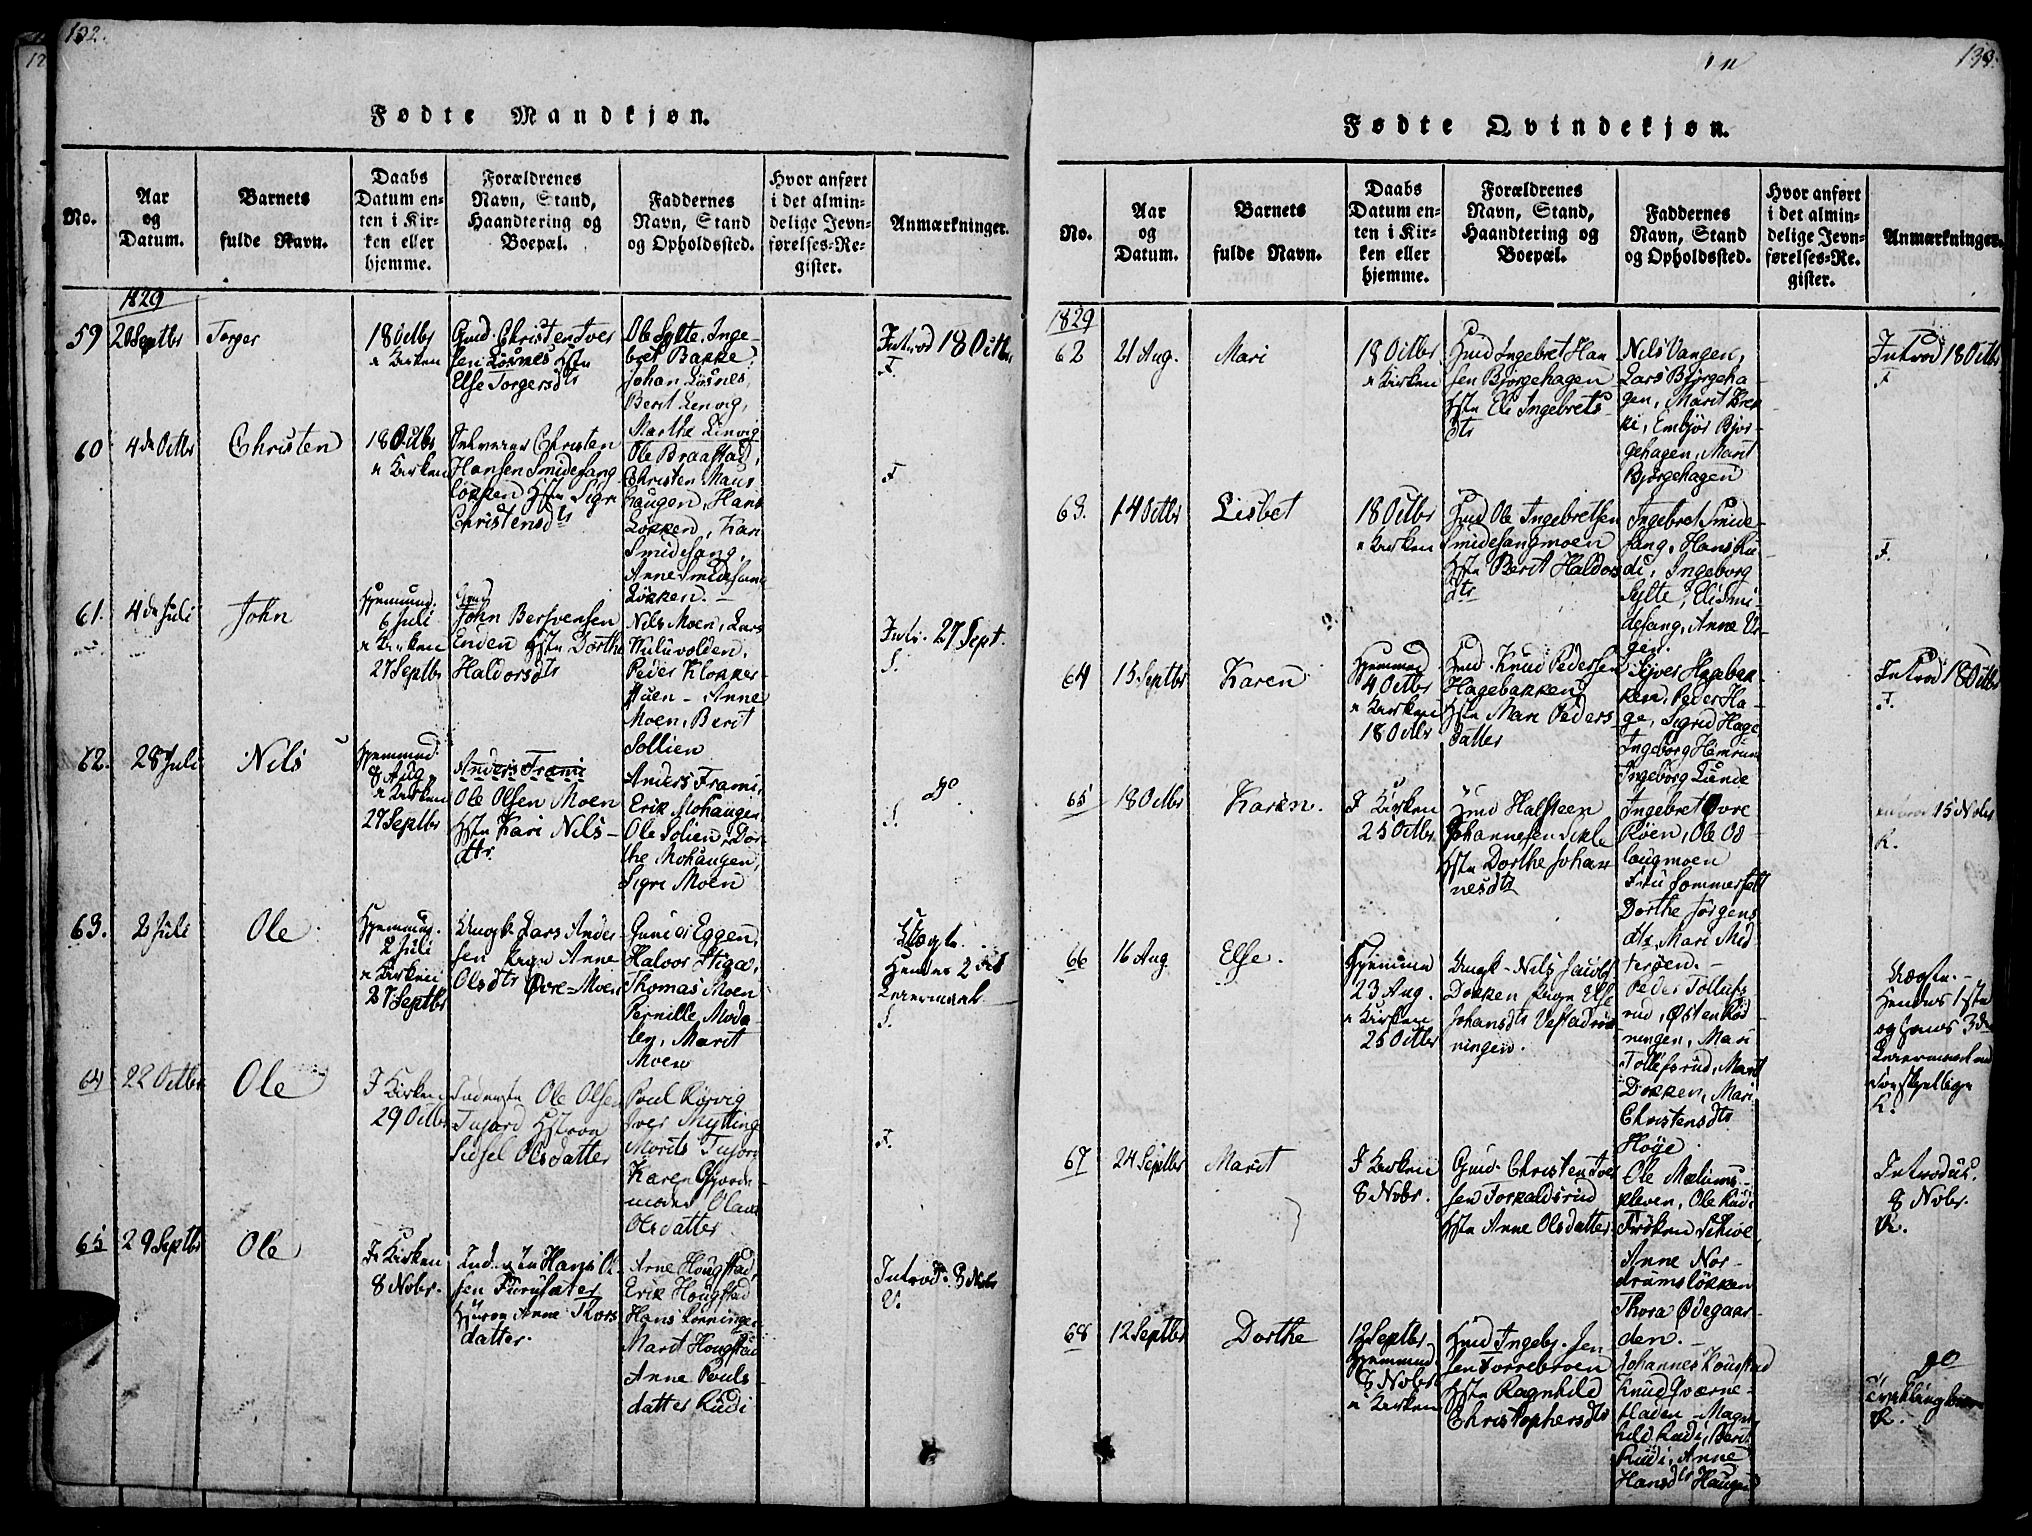 132.
Fødte Mandkjøn.
No.
Aar
og
Datum.
Barnets
fulde Navn.
Daabs
Datum en-
ten i Kir-
ken eller
hjemme.
Forældrenes
Navn, Stand,
Haandtering og
Boepæl.
Faddernes
Navn, Stand
og Opholdssted.
Hvor anført
i det almin-
delige Jevn-
førelses-Re-
gister.
Anmærkninger.
1829
59
20 Septbr
Torger
18 Octbr
i Kirken
Gmd. Christen Iver
sen Løsnes Hst
Else Torgersdtr
Ole Sylte, Inge-
bret Bakke,
Johan Løsnes,
Berit Lenvig,
Marthe Linvig
Introd 18 Octbr
F.
60
4de Octbr
Christen
18 Octbr
i Kirken
Christen
Hansen Smidesang
løkken Hst Sigri
Christensdtr
Ole Braastad,
Christen Maus
haugen, Hans
Løkken, Kari
Smidesang,
Anne Smidesang
Løkken.
F.
61.
4de Juli
John
Hjemmed.
6 Juli
i Kirken
27 Septbr
Gmd
John Bersvensen
Enden Hst Dorthe
Haldorsdtr
Nils Moen, Lars
Huluvolden,
Peder Klokker-
Huen - Anne
Moen, Berit
Sollien
Intr. 27 Sept.
S.
62.
28 Juli
Nils
Hjemmed.
8 Aug.
i Kirken
27 Septbr
Anders Frami
Ole Olsen Moen
Hst Kari Nils-
dtr.
Anders Frami,
Erik Mohaugen
Ole Solien, Dor
the Mohaugen,
Sigri Moen
do.
S.
63.
2 Juli
Ole
Hjemmed.
2 Juli
i Kirken
27 Septbr
Ungk. Lars Ander-
sen Pige Anne
Olsdtr Øvre-Moen
Gunder Eggen,
Halvor Stiga,
Thomas Moen
Pernille, Moda-
len, Marit
Moen
Uægte.
Hendes 2det
Leiermaal
S.
64
22 Octbr
Ole
I Kirken
29 Octbr
Ole Olsen
Tusord
Sidsel Olsdatter
Poul Rørvig
Iver Mytting
Morits Tusord
Karen
Olsdatter
F.
65
29 Septbr
Ole
I Kirken
8 Novbr.
Hans Ol-
sen Furusater
Anne Tors
datter.
Arne Hougstad,
Erik Hougstad
Hans Rønningen
Marit Hougstad
Anne Pouls-
datter Rudi
Introd. 8 Novbr
V.
133.
Fødte Qvindekjøn.
No.
Aar
og
Datum.
Barnets
fulde Navn.
Daabs
Datum en-
ten i Kir-
ken eller
hjemme.
Forældrenes
Navn, Stand,
Haandtering og
Boepæl.
Faddernes
Navn, Stand
og Opholdssted.
Hvor anført
i det almin-
delige Jevn-
førelses-Re-
gister.
Anmærkninger.
1829
62
21 Aug.
Mari
18 Octbr
i Kirken
Hmd Ingebret Han
sen Bjørgehagen
Hst Eli Ingebrets-
dtr
Nils Vangen,
Lars Bjørgeha-
gen, Marit Brek
ke, Embjør Bjør-
gehagen, Marit
Bjørgehagen
Introd 18 Octbr
F
63.
14 Octbr
Lisbet
18 Octbr
i Kirken
Hmd Ole Ingebretsen
Smidesangmoen
Hst Berit Haldors
dtr
Ingebret Smide-
sang, Hans Ru-
di, Ingeborg
Sylte, Eli Smi-
desang, Anne Ur-
gen.
F.
64
15 Septbr
Karen
Hjemmed
4 Octbr
i Kirken
18 Octbr
Hmd. Knud Pedersen
Hagebakken
Hst Mari Peders
datter
Siver Hagebak-
ken, Peder Ha-
ge, Sigrid Hage
Ingeborg Hamrum
Ingeborg Lunde
Introd 18 Octbr
F.
65
18 Octbr
Karen.
I Kirken
25 Octbr
Hmd Halsteen
Johannesen
Hst Dorthe Johan
nesdtr
Ingebret Øvre
Røen, Ole Od-
laugmoen
Fru Sommerfelt
Dorthe Jørgens
dtr, Mari Mid-
terøen.
Introd 15 Novbr
K.
66
16 Aug
Else.
Hjemme
23 Aug.
i Kirken
25 Octbr
Ungk. Nils Jacobs
Dokken Pige Else
Johansdtr Vestadrøn
ningen.
Peder Tollefs
rud, Østen Røn-
ningen, Mari
Tollefsrud, Marit
Dokken, Mari
Christensdtr
Høye
Uægte.
Hendes 1ste
og hans 3de
Leiermaal med
forskjellige
K.
67
24 Septbr
Marit
I Kirken
8 Novbr.
Gmd. Christen Iver
sen Torkaldsrud
Hst Anne Olsdatter
Ole Mælums-
kleven, Ole Rudi
Frøken Schive,
Anne Nor-
drumsløkken
Thora Ødegaar-
den.
Introduc.
8 Novbr.
K.
68
12 Septbr
Dorthe
12 Septbr
Hjemmed.
8 Novbr
i Kirken
Hmd Ingebr. Jen
sen Torrebroen
Hst Ragnhild
Christophersdtr
Johannes
Knud Qværne-
kladen - Magn
hild Rudi, Berit
Rudi, Anne
Hansdtr Haugen
do
K.